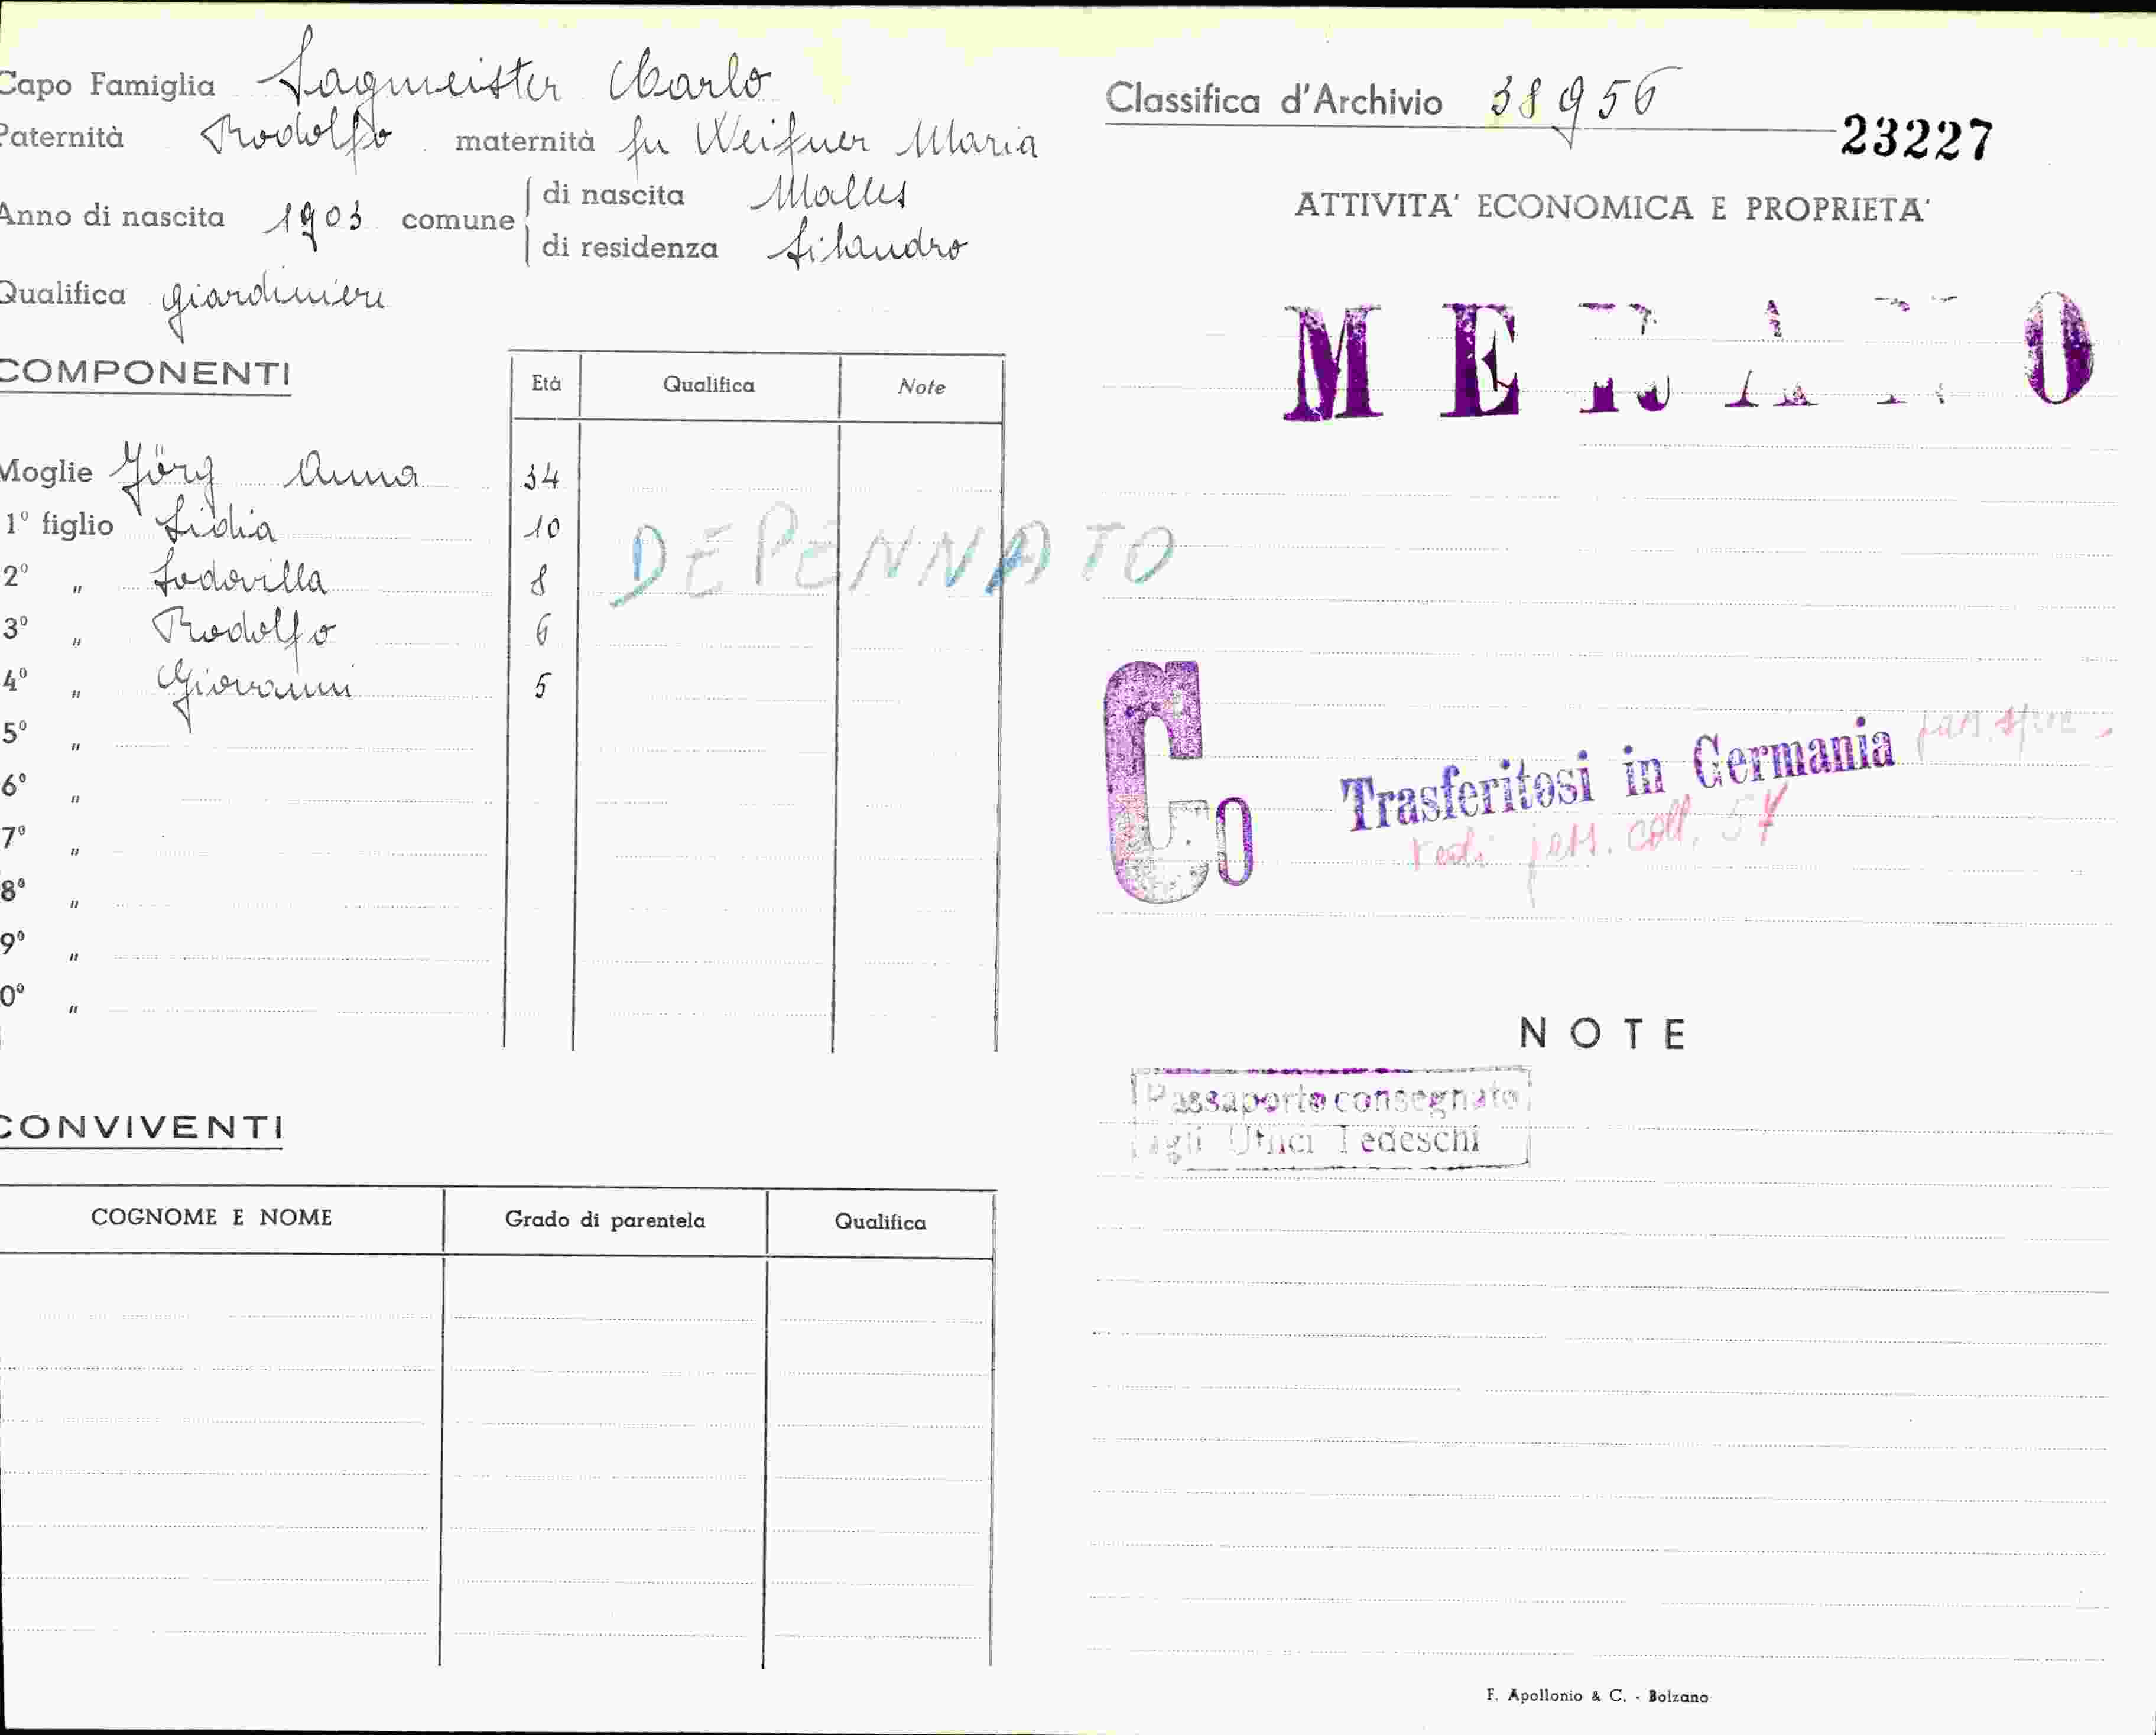 Capo Famiglia Sagmeister Carlo
Paternità Rodolfo maternità fu Weifner Maria
Anno di nascita 1903 comune
di nascita Malles
di residenza Silandro
Qualifica giardiniere
COMPONENTI
Età Qualifica Note
Moglie Jörg Anna 34
1º figlio Lidia 10
2º " Lodovilla 8
3º " Rodolfo 6
4º " Giovanni 5
5º "
6º "
7º "
8º "
9º "
0º "
DEPENNATO
CONVIVENTI
COGNOME E NOME Grado di parentela Qualifica
Classifica d'Archivio 38956
23227
ATTIVITA' ECONOMICA E PROPRIETA'
MERANO
Co
Trasferitosi in Germania
coll. 54
NOTE
Passaporto consegnato
agli Uffici Tedeschi
F. Apollonio & C. - Bolzano